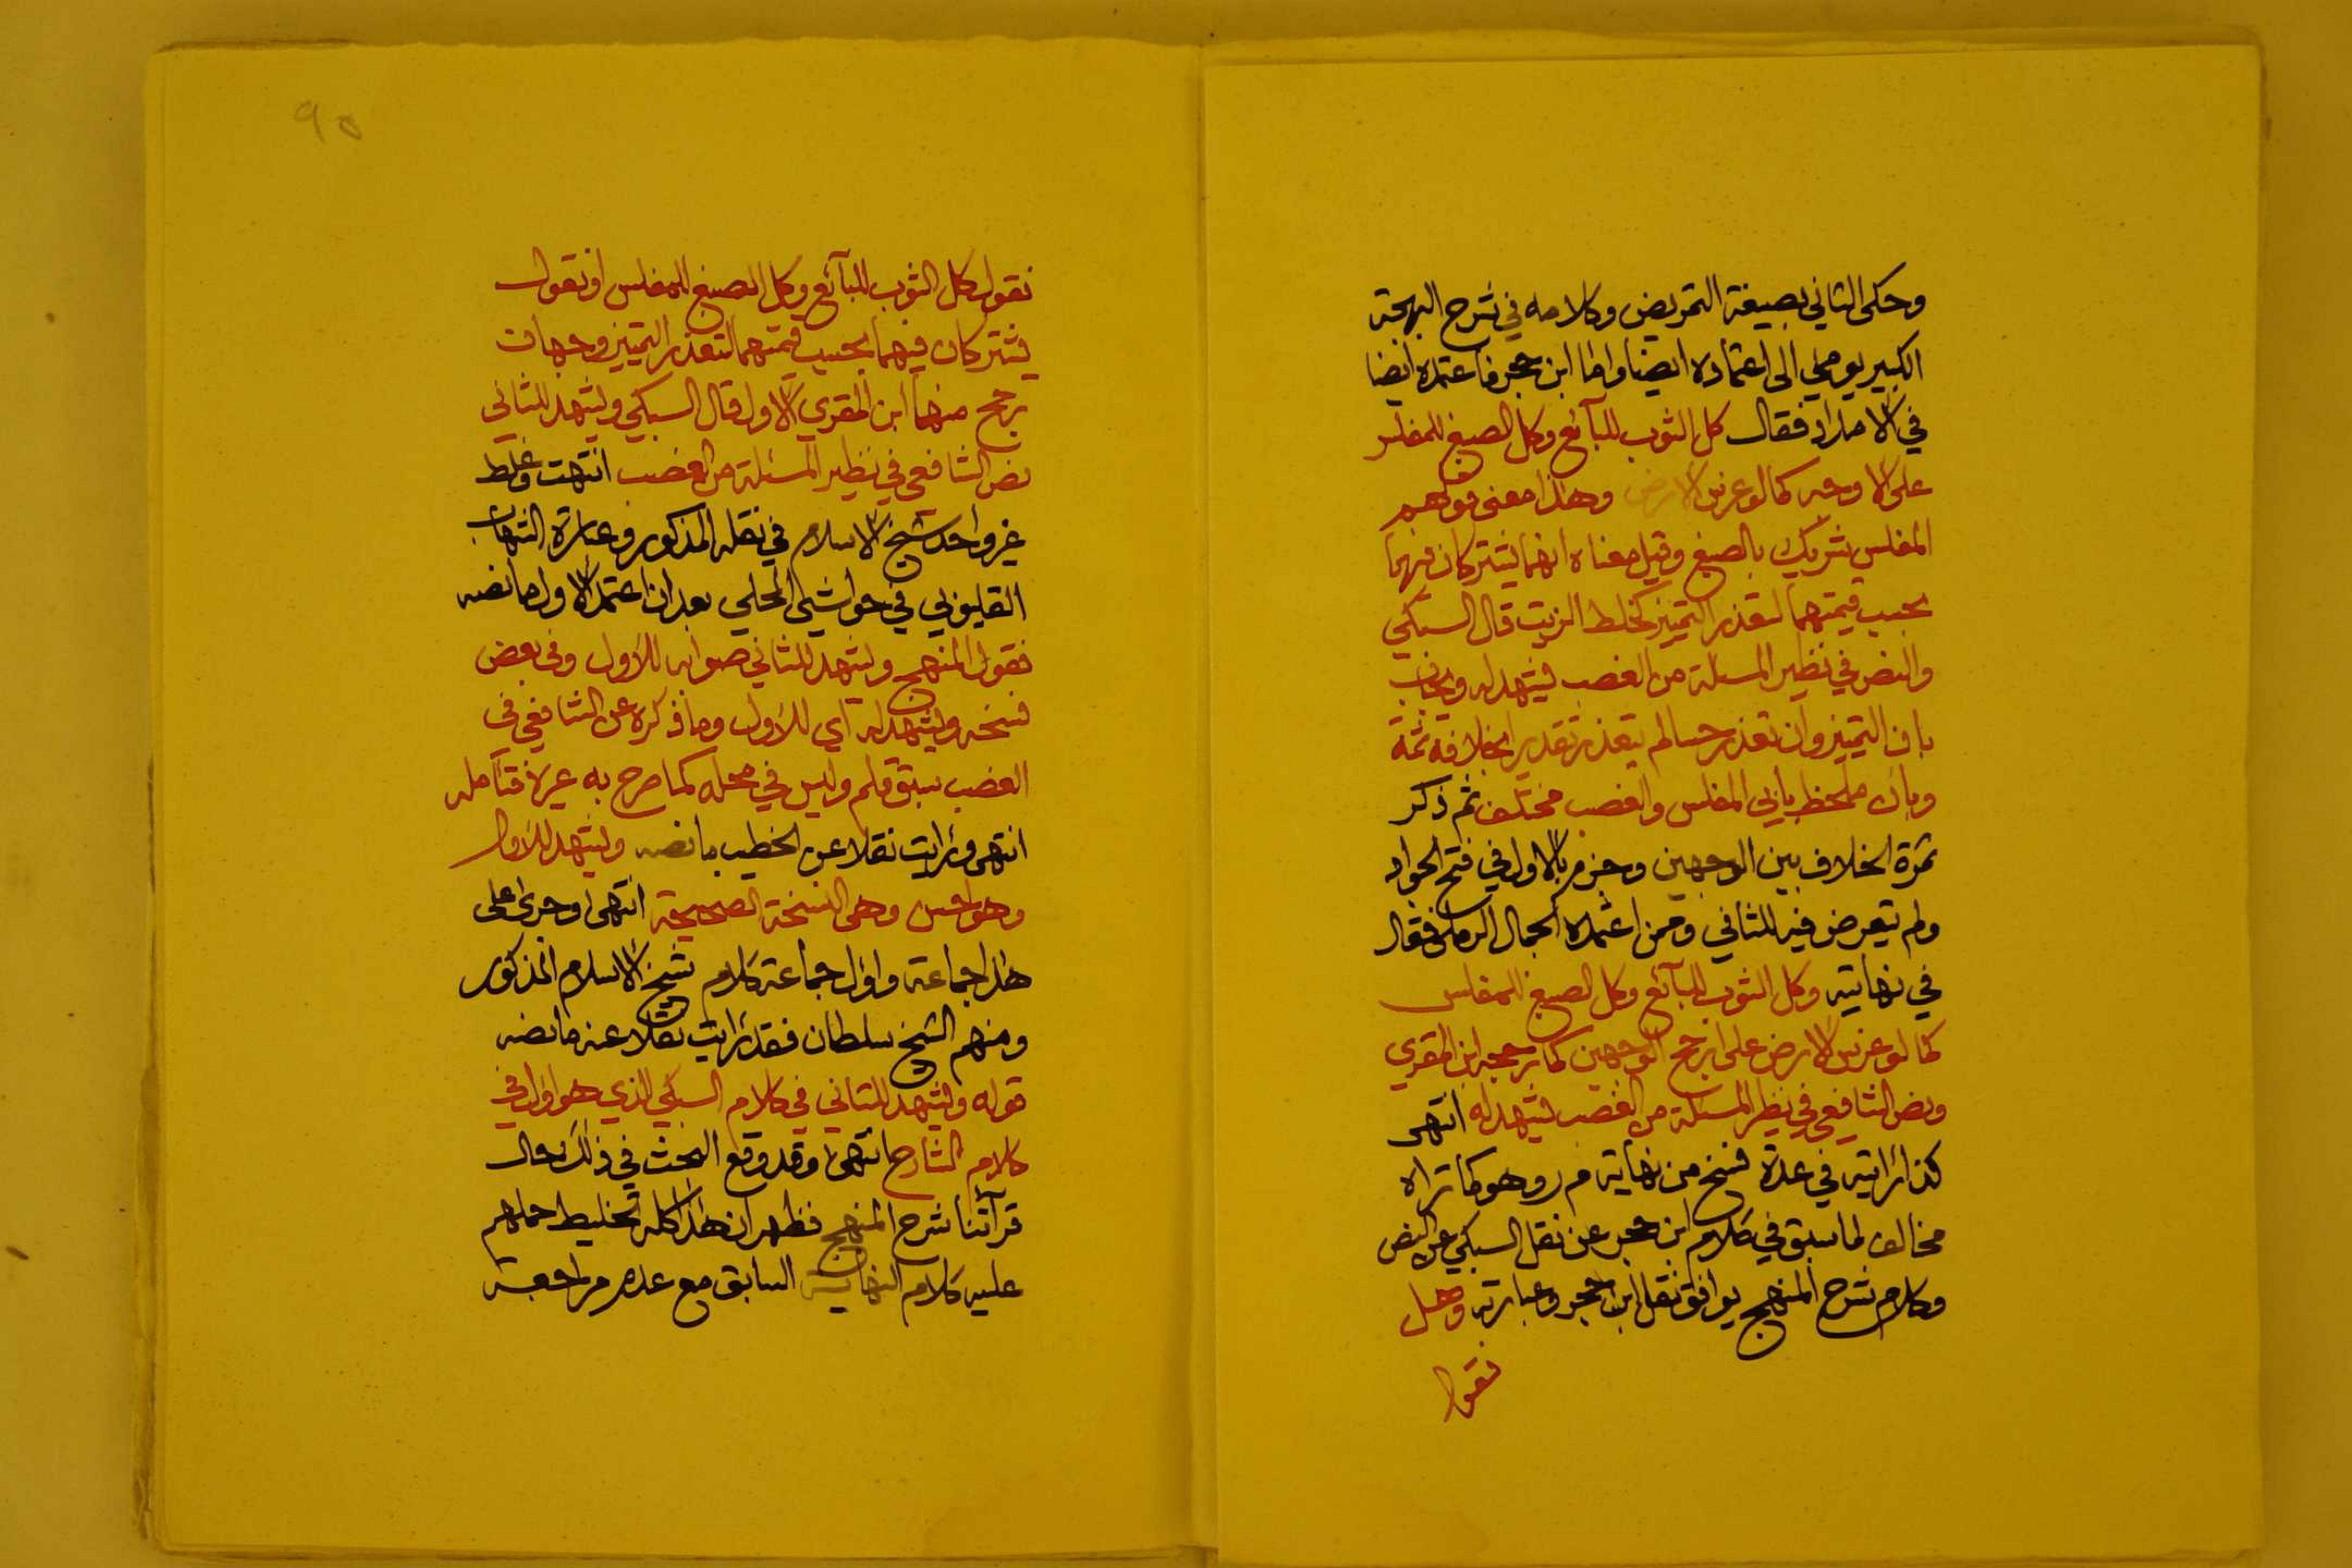 وحكى الثاني بصيغة التمريض وكلامه في شرح البهجة
الكبير يومئ الى اعتماده ايضا واما ابن حجر فاعتمده ايضا
في الامداد فقال كل الثوب للبآئع وكل الصبغ للمفلس
على الاوجه كما لو غرس الارض وهذا معنى قولهم
المفلس شريك بالصبغ وقيل معناه انهما يشتركان فيهما
بحسب قيمتهما لتعذر التميز كخلط الزيت قال السبكي
والنص في نظير المسئلة من الغصب يشهد له ويجاب
بان التميز وان تعذر حسا لم يتعذر تقديرا بخلافه ثمة
وبان ملحظ بابي المفلس والغصب مختلف ثم ذكر
ثمرة الخلاف بين الوجهين وجزم بالاول في فتح الجواد
ولم يتعرض فيه للثاني وممن اعتمده الجمال الرملي فقال
في نهايته وكل الثوب للبآئع وكل الصبغ للمفلس
كما لو غرس الارض على ارجح الوجهين كما رجحه ابن المقري
ونص الشافعي في نظير المسئلة من الغصب يشهد له انتهى
كذا رايته في عدة نسخ من نهاية م ر وهو كما تراه
مخالف لما سبق في كلام ابن حجر عن نقل السبكي عن النص
وكلام شرح المنهج يوافق نقل ابن حجر وعبارته وهل
نقول
٩٥
نقول كل الثوب للبآئع وكل الصبغ للمفلس او نقول
يشتركان فيهما بحسب قيمتهما لتعذر التميز وجهان
رجح منهما ابن المقري الاول قال السبكي ويشهد للثاني
نص الشافعي في نظير المسئلة من الغصب انتهت وغلط
غير واحد شيخ الاسلام في نقله المذكور وعبارة الشهاب
القليوبي في حواشي المحلي بعد ان اعتمد الاول ما نصه
فقول المنهج ويشهد للثاني صوابه للاول وفي بعض
نسخه ويشهد له اي للاول وما ذكره عن الشافعي في
الغصب سبق قلم وليس في محله كما صرح به غيره فتأمله
انتهى ورايت نقلا عن الخطيب ما نصه ويشهد للاول
وهو احسن وهي النسخة الصحيحة انتهى وجرى على
هذا جماعة واول جماعة كلام شيخ الاسلام المذكور
ومنهم الشيخ سلطان فقد رايت نقلا عنه ما نصه
قوله ويشهد للثاني في كلام السبكي الذي هو اول في
كلام الشارح انتهى وقد وقع البحث في ذلك حال
قرآتنا شرح المنهج فظهر ان هذا كله تخليط حملهم
عليه كلام النهاية السابق مع عدم مراجعة